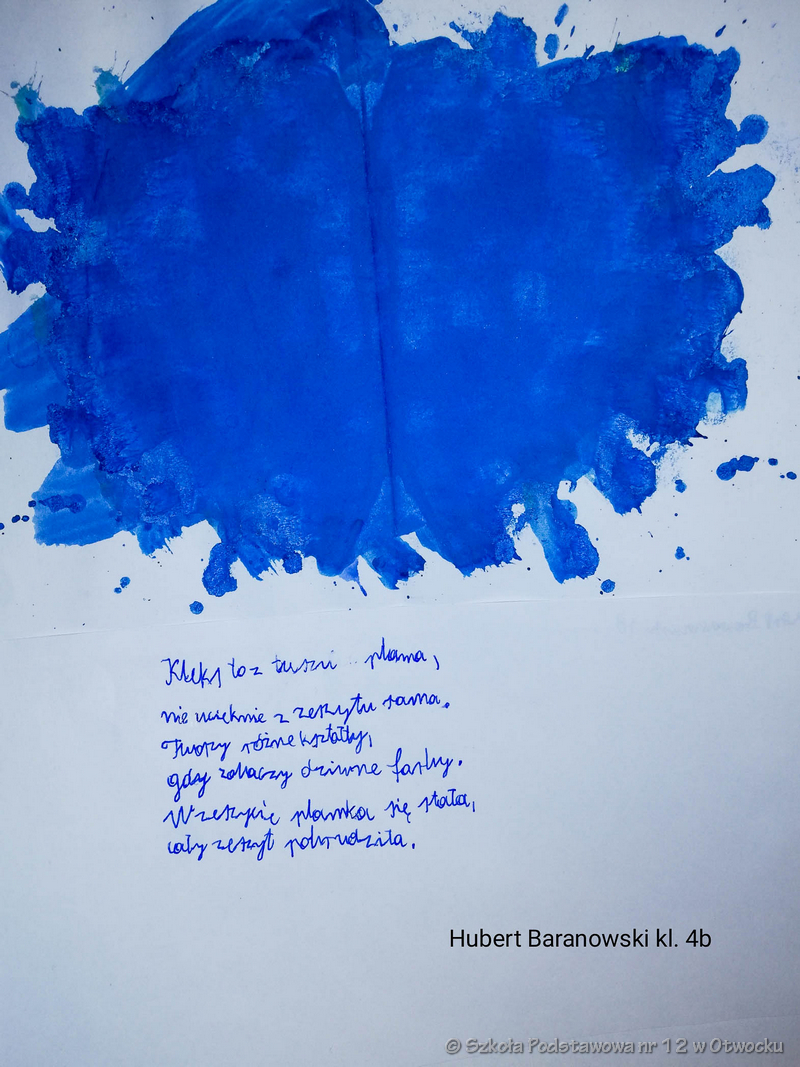 Kleks to z tuszu plama,
nie ucieknie z zeszytu sama.
Tworzy różne kształty,
gdy zobaczy dziwne farby.
W zeszycie plamka się stała,
cały zeszyt pobrudziła.
Hubert Baranowski kl. 4b
© Szkoła Podstawowa nr 12 w Otwocku